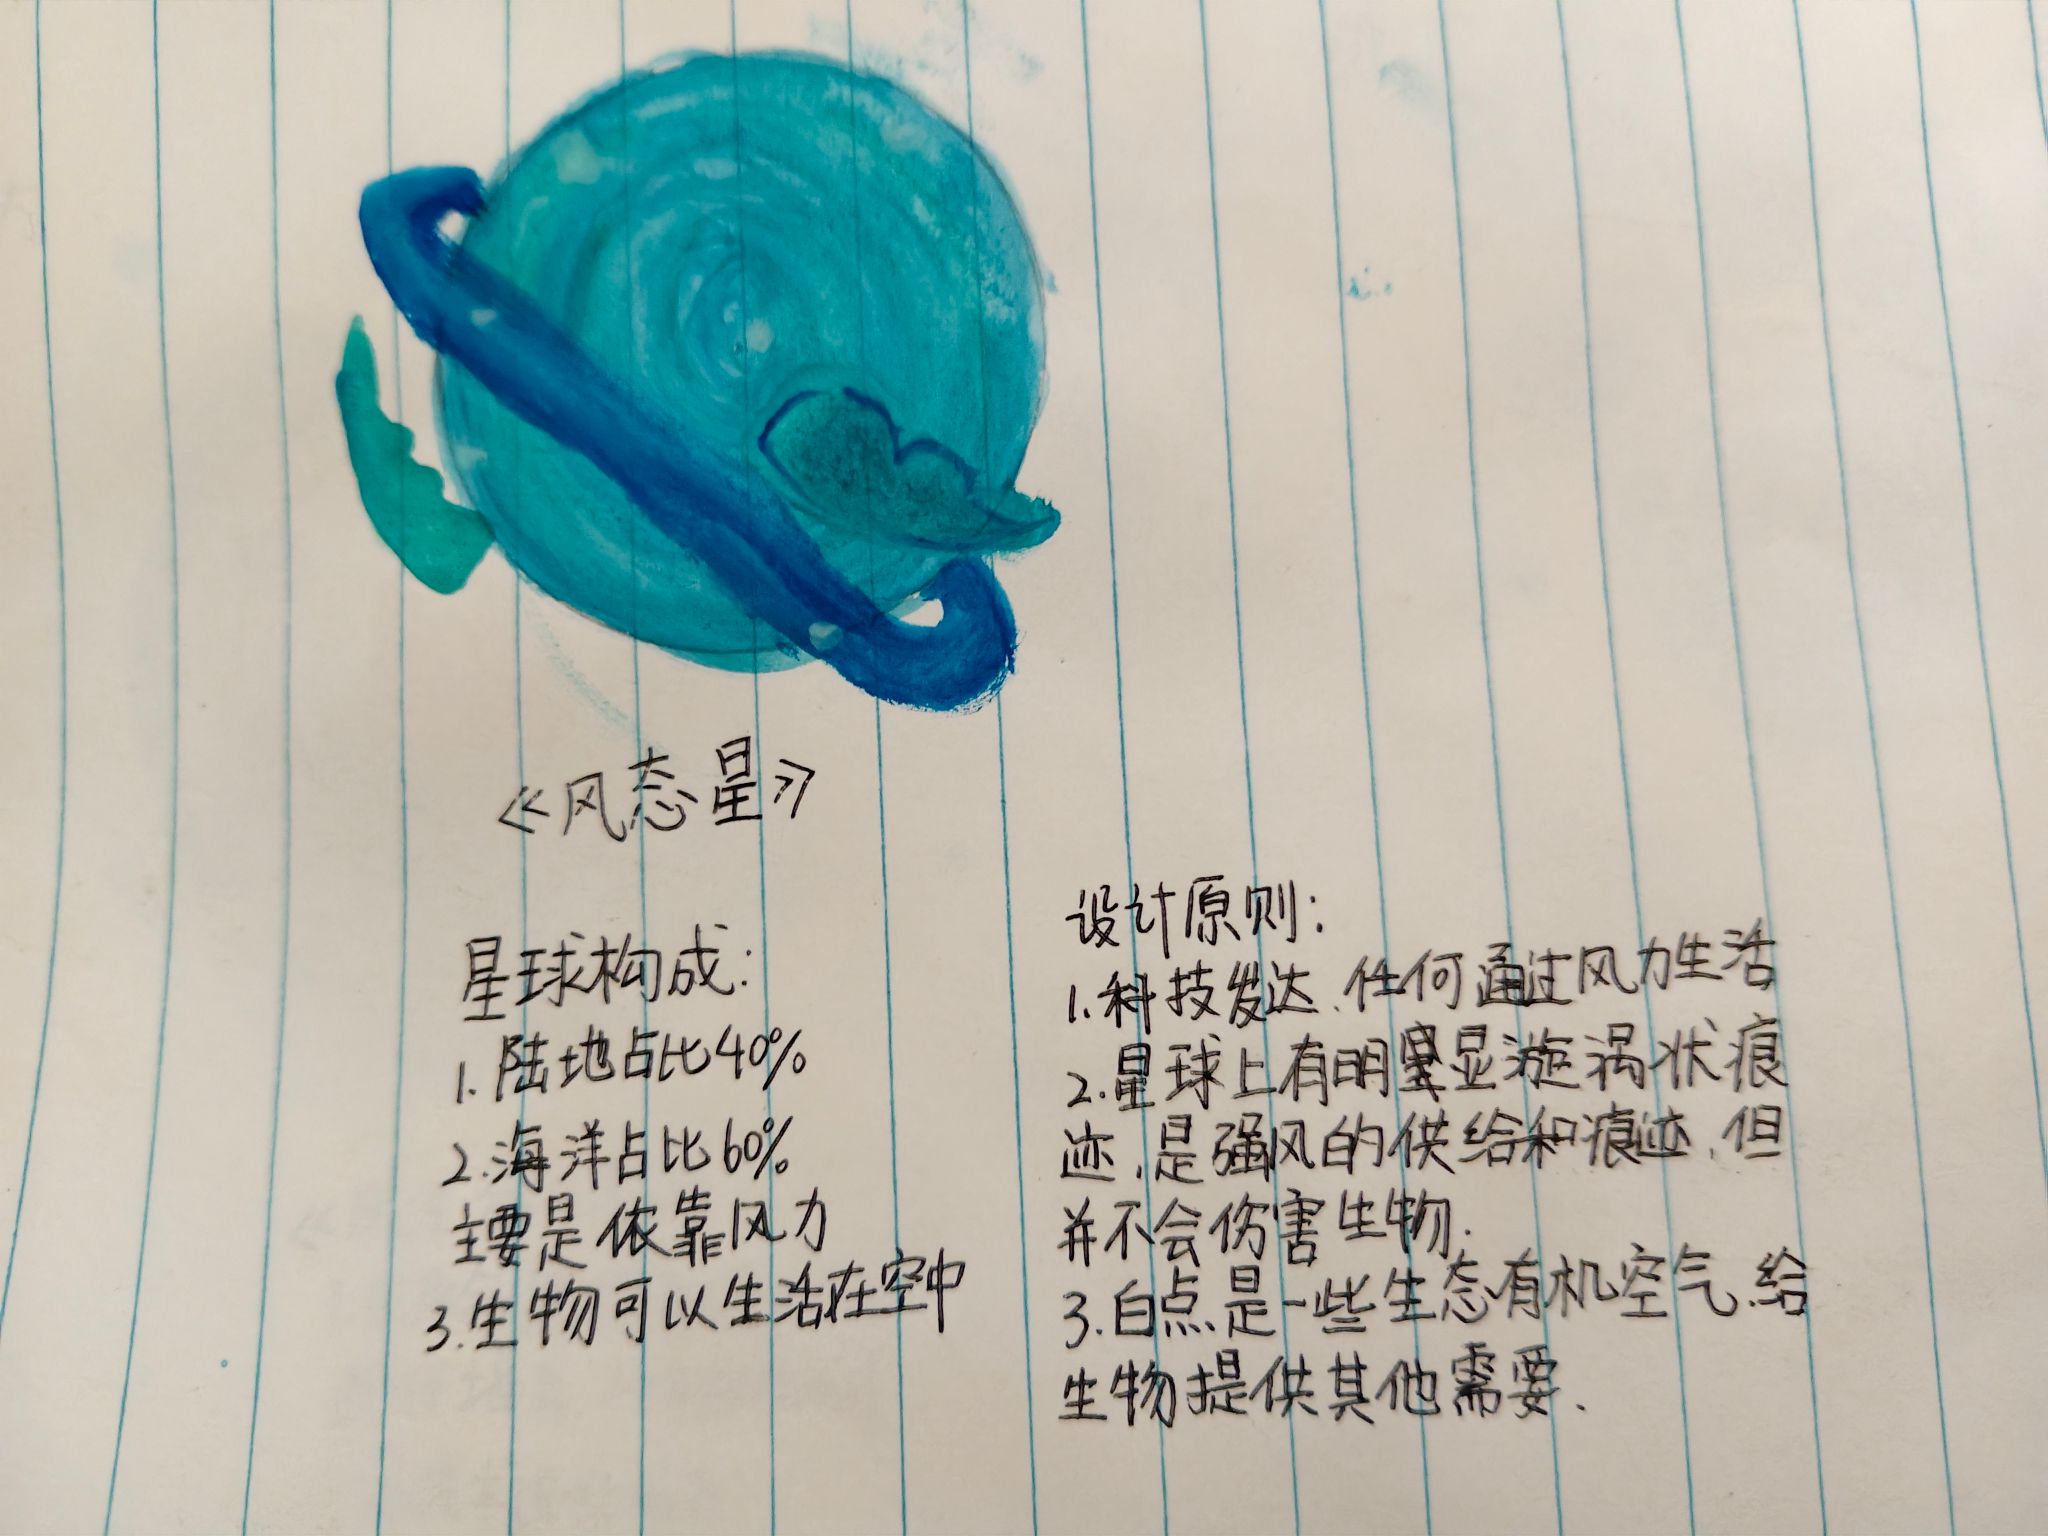 《风态星》
星球构成:
1.陆地占比40%
2.海洋占比60%
主要是依靠风力
3.生物可以生活在空中
设计原则:
1.科技发达、任何通过风力生活
2.星球上有明显漩涡状痕
迹,是强风的供给和痕迹,但
并不会伤害生物.
3.白点是一些生态有机空气.给
生物提供其他需要.